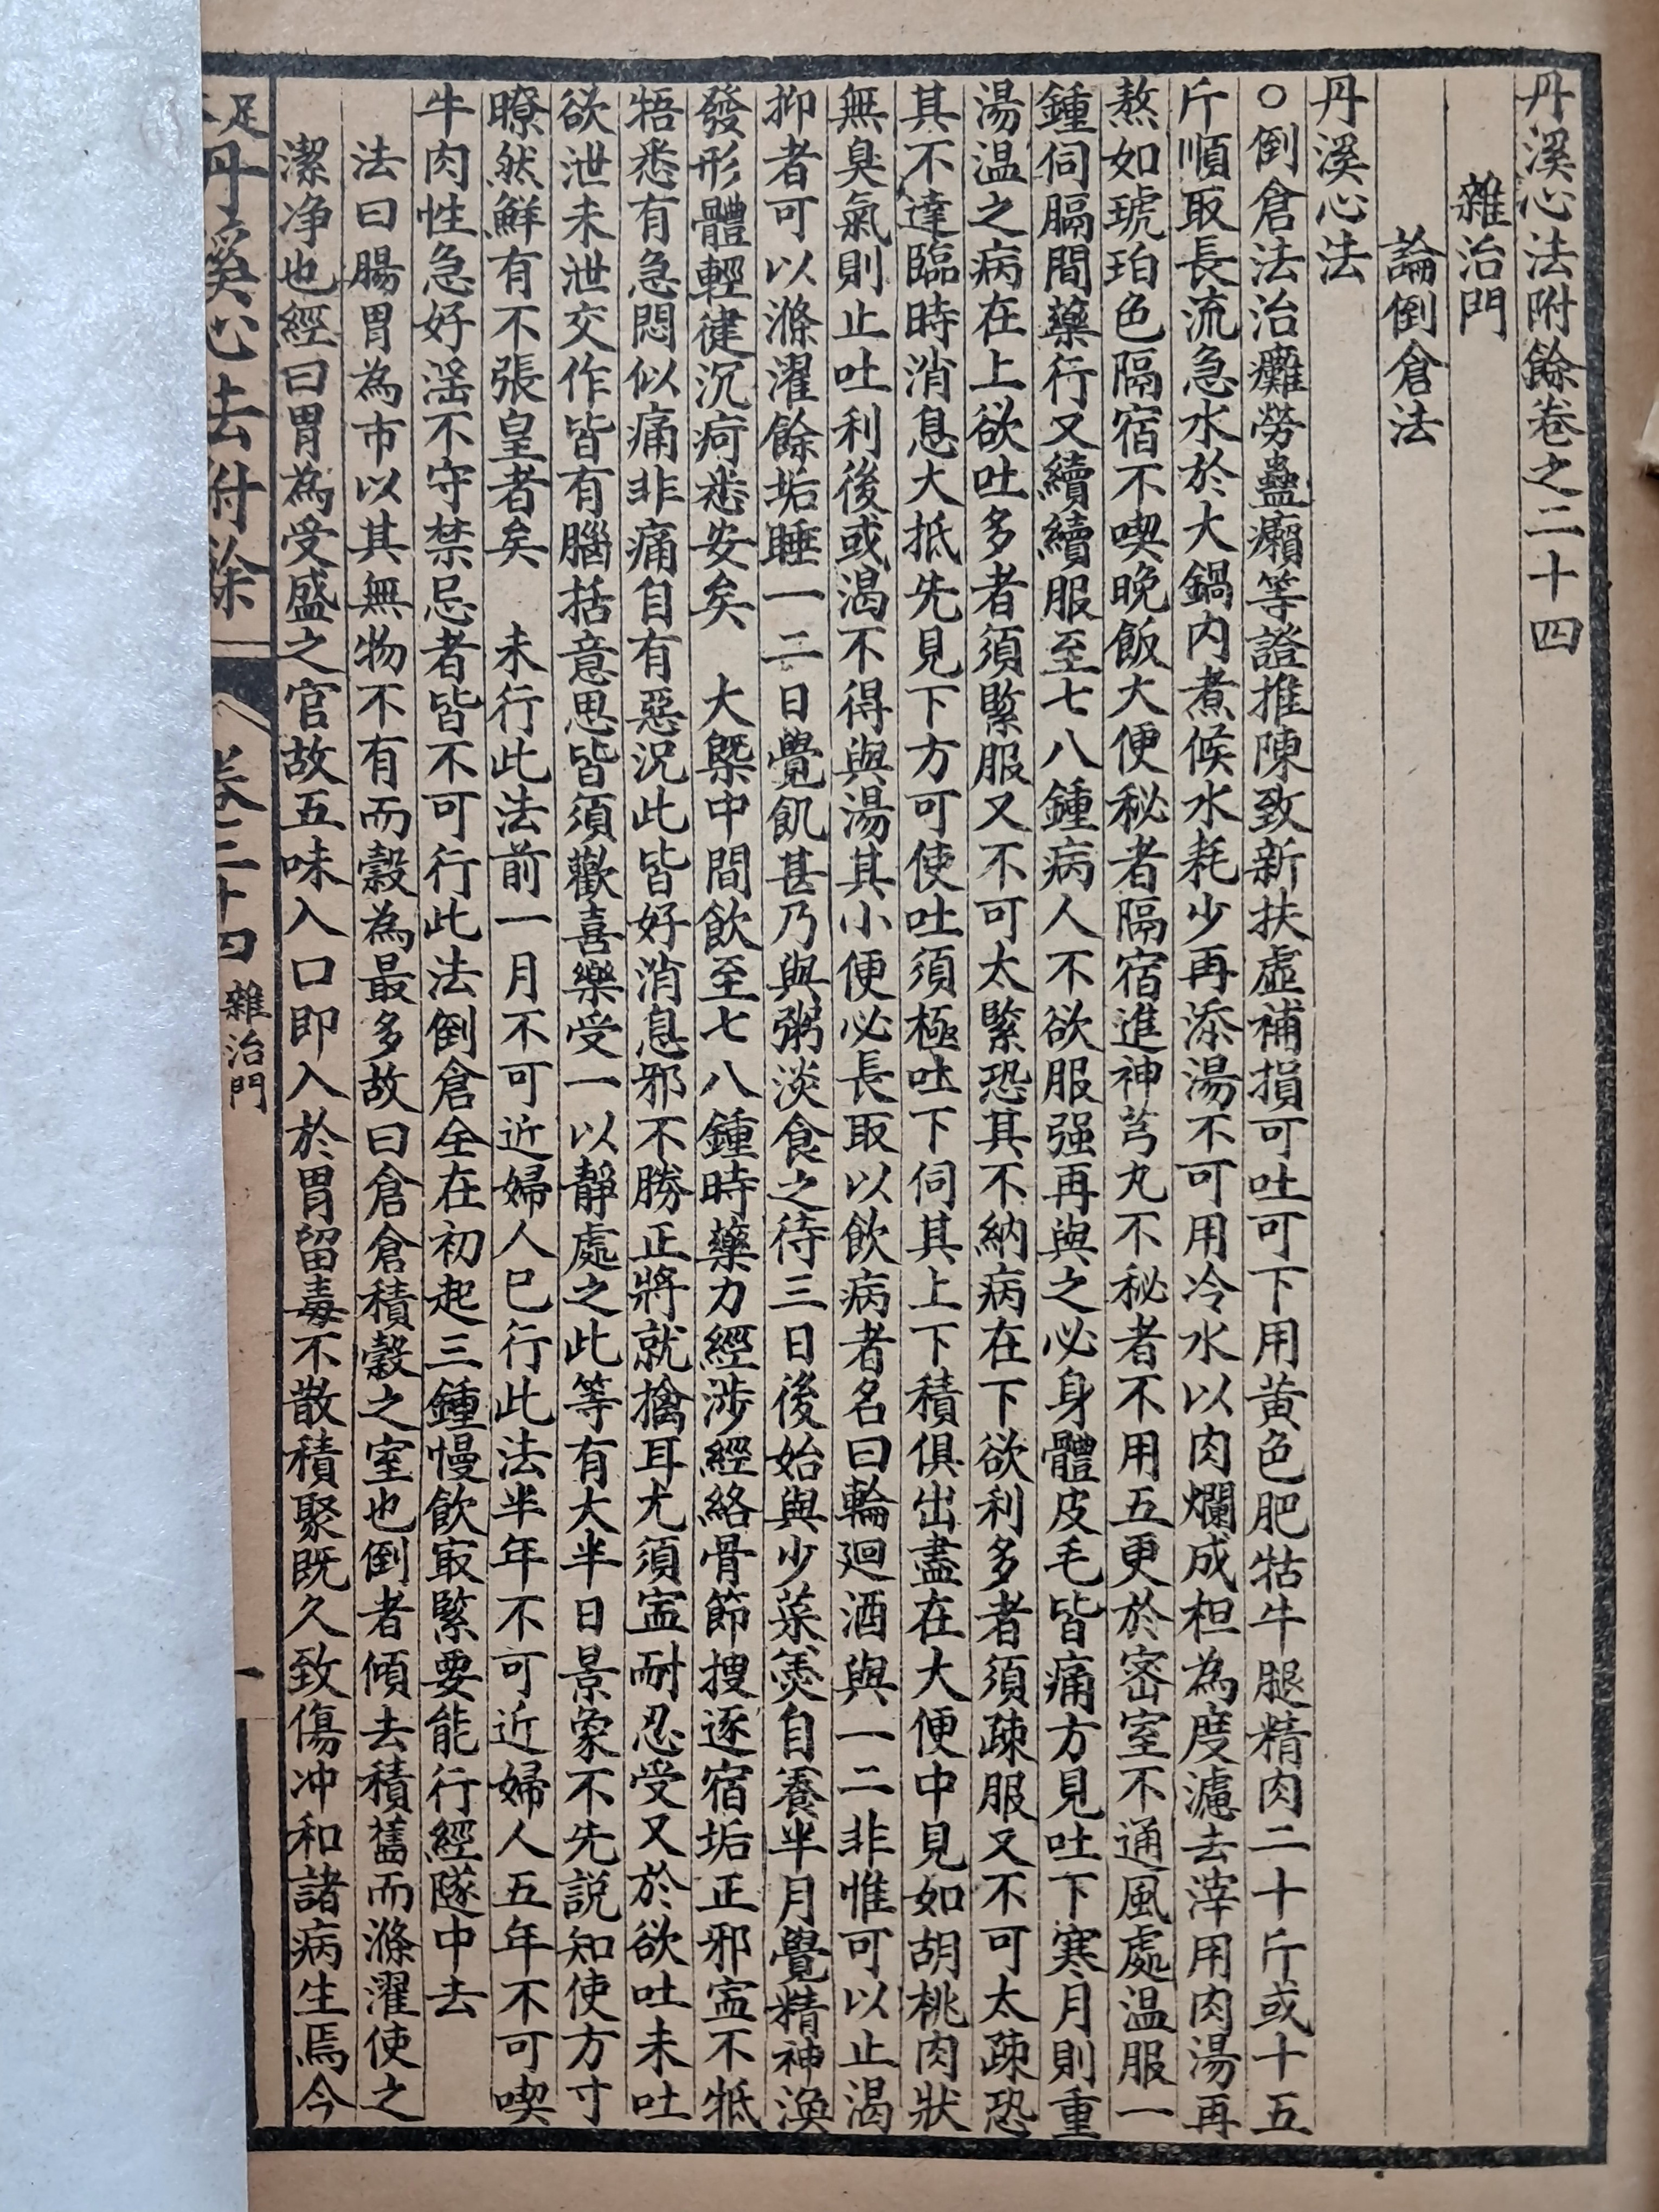 丹溪心法附餘卷之二十四
雜治門
論倒倉法
丹溪心法
○倒倉法治癱勞蠱癩等證推陳致新扶虛補損可吐可下用黃色肥牯牛腿精肉二十斤或十五
斤順取長流急水於大鍋內煮候水耗少再添湯不可用冷水以肉爛成柤為度濾去滓用肉湯再
熬如琥珀色隔宿不喫晚飯大便秘者隔宿進神芎丸不秘者不用五更於密室不通風處温服一
鍾伺膈間藥行又續續服至七八鍾病人不欲服强再與之必身體皮毛皆痛方見吐下寒月則重
湯温之病在上欲吐多者須緊服又不可太緊恐其不納病在下欲利多者須疎服又不可太疎恐
其不達臨時消息大抵先見下方可使吐須極吐下伺其上下積俱出盡在大便中見如胡桃肉狀
無臭氣則止吐利後或渴不得與湯其小便必長取以飲病者名曰輪廻酒與一二非惟可以止渴
抑者可以滌濯餘垢睡一二日覺飢甚乃與粥淡食之待三日後始與少菜羮自養半月覺精神渙
發形體輕健沉疴悉安矣　大槩中間飲至七八鍾時藥力經涉經絡骨節搜逐宿垢正邪寍不牴
牾悉有急悶似痛非痛自有惡況此皆好消息邪不勝正將就擒耳尤須寍耐忍受又於欲吐未吐
欲泄未泄交作皆有腦括意思皆須歡喜樂受一以靜處之此等有大半日景象不先説知使方寸
瞭然鮮有不張皇者矣　未行此法前一月不可近婦人已行此法半年不可近婦人五年不可喫
牛肉性急好滛不守禁忌者皆不可行此法倒倉全在初起三鍾慢飲㝡緊要能行經隧中去
法曰腸胃為市以其無物不有而穀為最多故曰倉倉積穀之室也倒者傾去積舊而滌濯使之
潔净也經曰胃為受盛之官故五味入口即入於胃留毒不散積聚既久致傷冲和諸病生焉今
足
丹溪心法附餘　卷二十四　雜治門　一